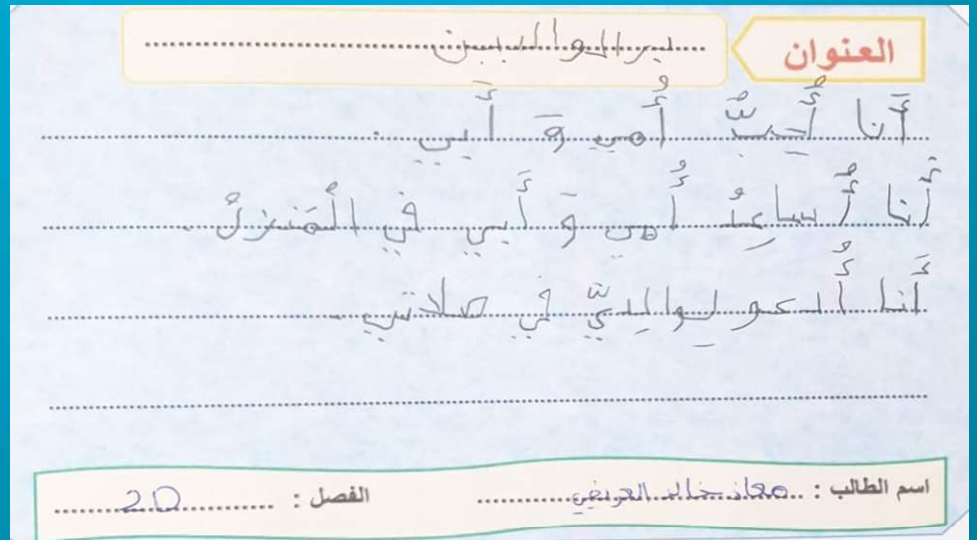 العنوان
بر الوالدين
أَنا أُحِبُّ أُمي وَ أَبي .
أَنا أُساعِدُ أُمي وَ أَبي في الْمَنزِلْ .
أَنا أُدعو لِوالِديَّ في صلاتي .
اسم الطالب : معاذ خالد العريفي
الفصل : 2D